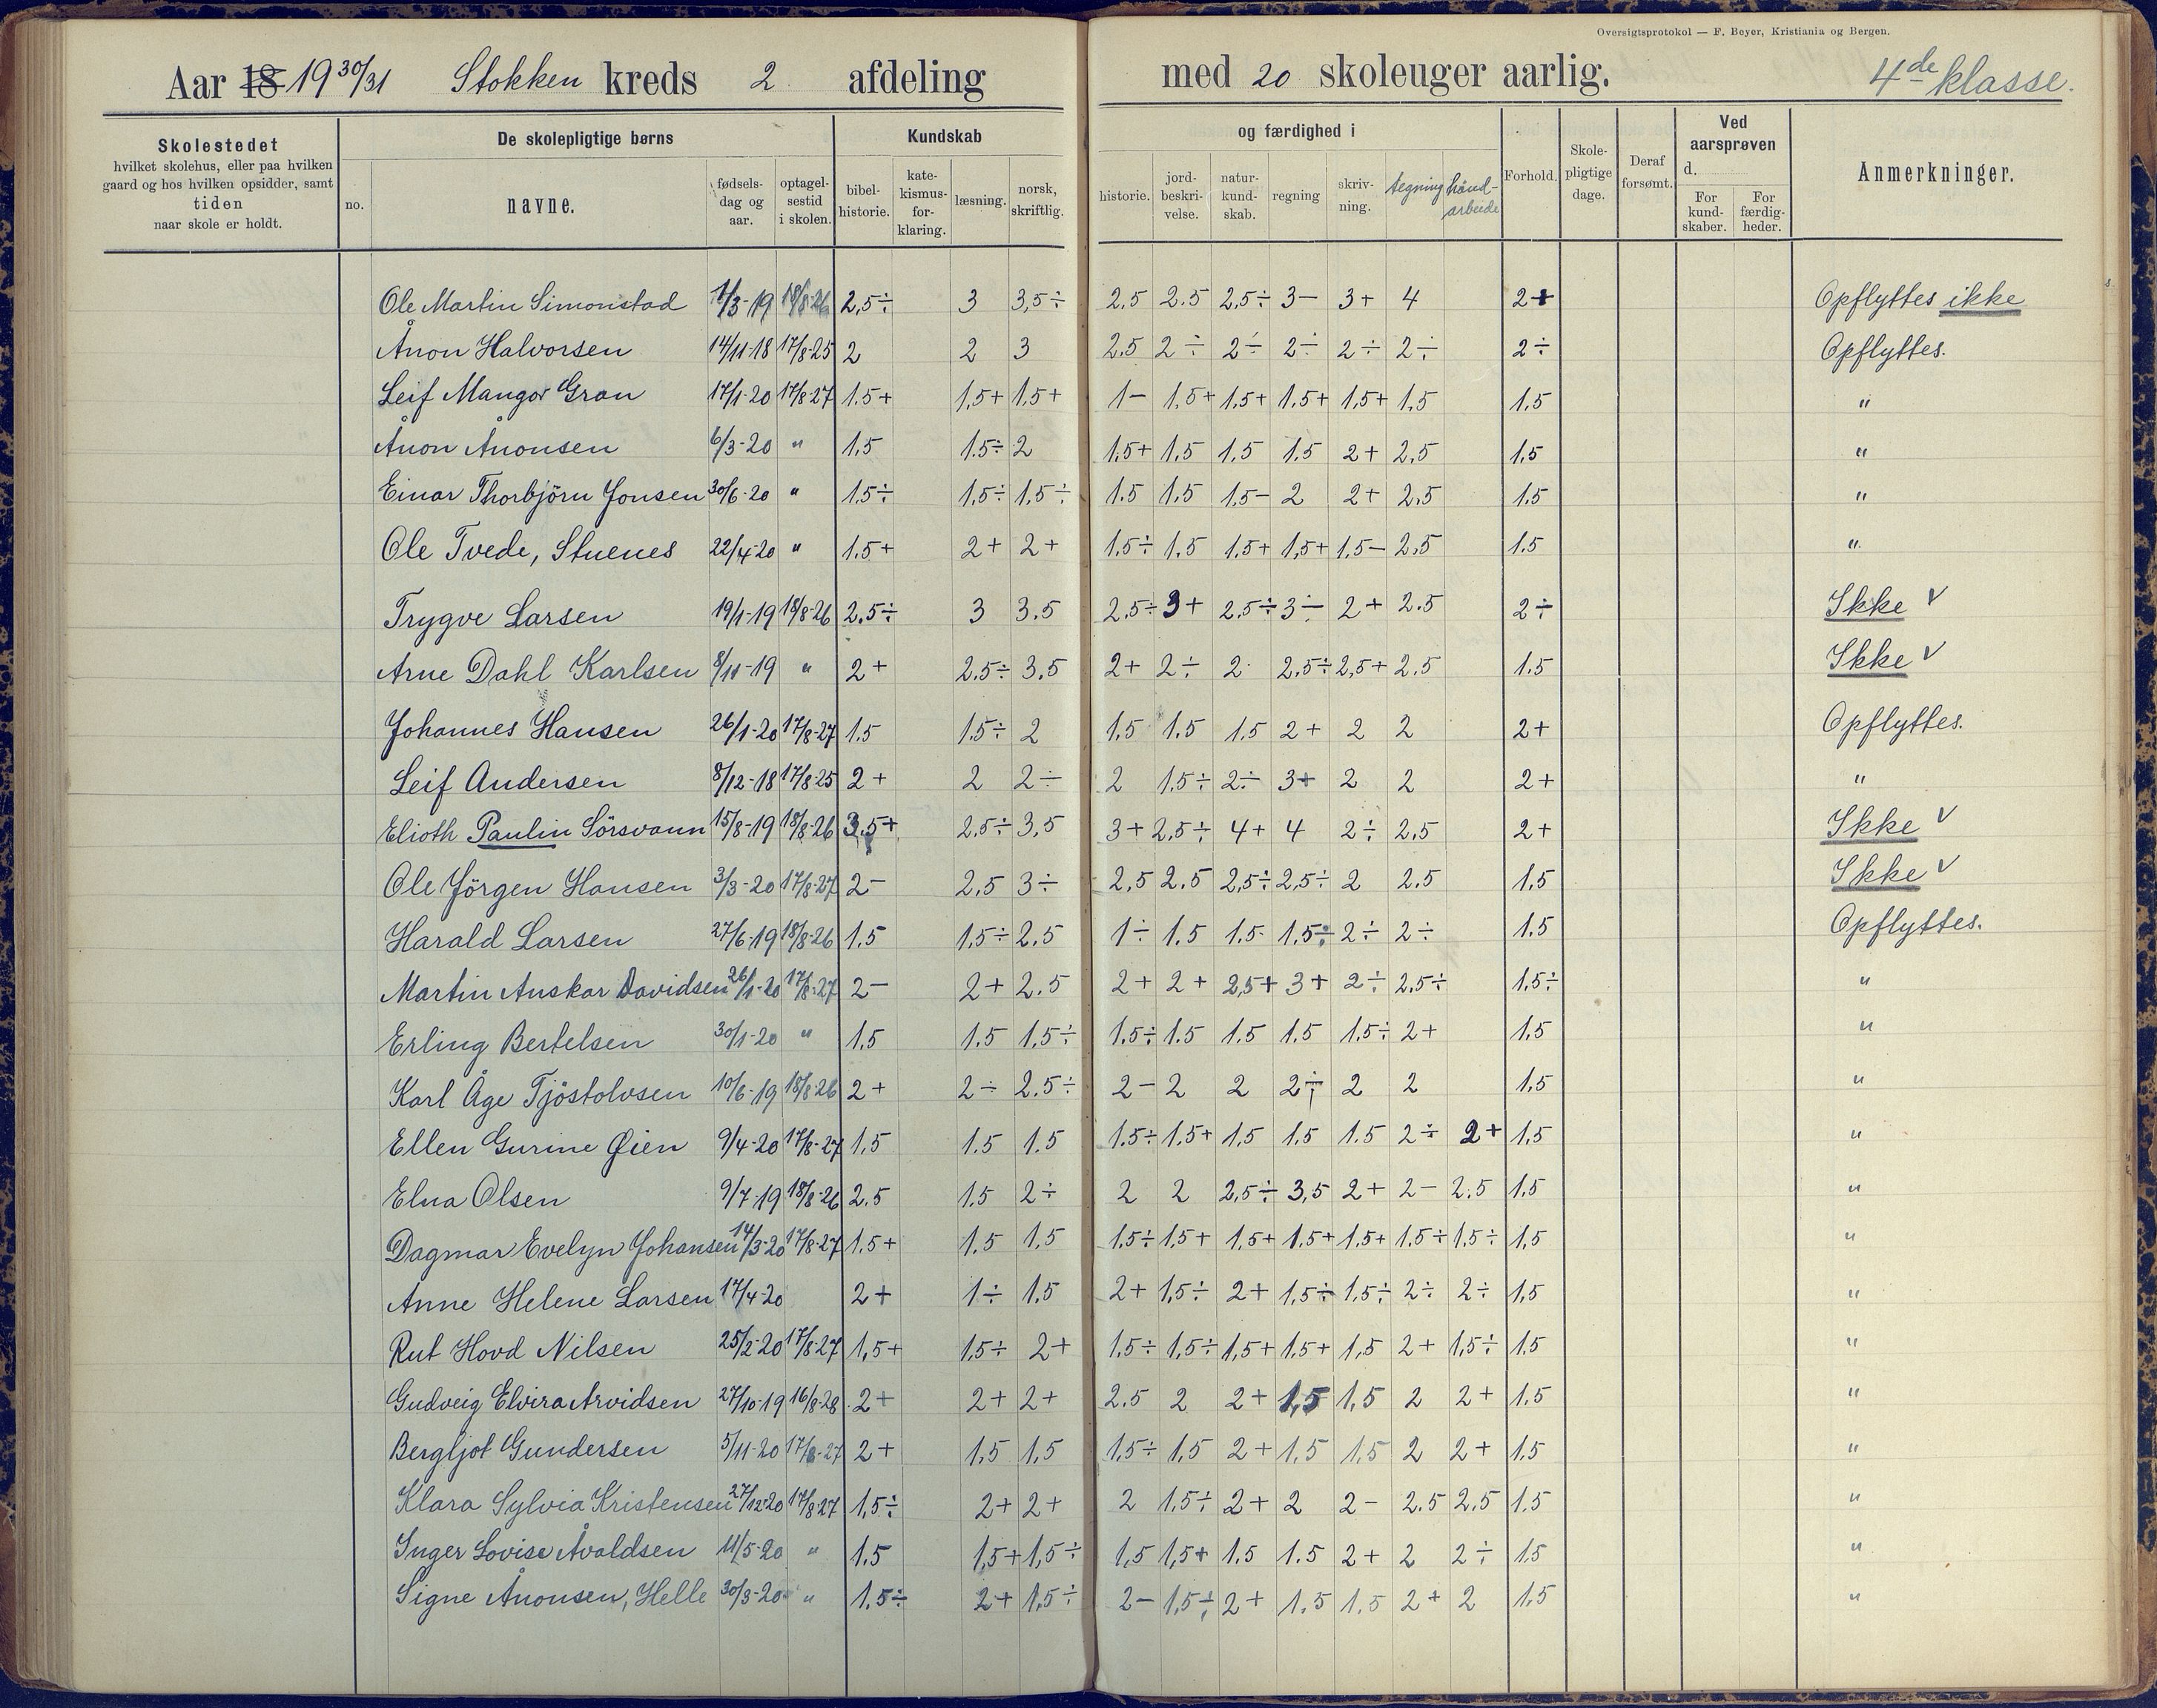 Oversigtsprotokol — F. Beyer, Kristiania og Bergen.
Aar 18 19 30/31 Stokken kreds 2 afdeling med 20 skoleuger aarlig. 4de klasse.
Skolestedet hvilket skolehus, eller paa hvilken gaard og hos hvilken opsidder, samt tiden naar skole er holdt.
De skolepligtige børns
no. navne. fødsels-dag og aar. optagel-sestid i skolen.
Kundskab og færdighed i
bibel-historie. kate-kismus-for-klaring. læsning. norsk, skriftlig. historie. jord-beskri-velse. natur-kund-skab. regning skriv-ning. tegning hånd-arbeide
Forhold. Skole-pligtige dage. Deraf forsømt. Ved aarsprøven d. For kund-skaber. For færdig-heder. Anmerkninger.
Ole Martin Simonstad 1/3-19 18/8-26 2,5÷ 3 3,5÷ 2.5 2.5 2,5÷ 3- 3+ 4 2+ Opflyttes ikke
Ånon Halvorsen 14/11-18 17/8-25 2 2 3 2.5 2÷ 2÷ 2÷ 2÷ 2÷ 2÷ Opflyttes.
Leif Mangor Gran 17/1-20 17/8-27 1.5+ 1,5+ 1,5+ 1- 1,5+ 1,5+ 1.5+ 1,5+ 1,5 1.5 "
Ånon Ånonsen 6/3-20 " 1,5 1.5÷ 2 1.5+ 1,5 1,5 1.5 2+ 2.5 1,5 "
Einar Thorbjörn Jonsen 30/6-20 " 1.5÷ 1,5÷ 1,5÷ 1.5 1,5 1,5- 2 2+ 2,5 1,5 "
Ole Tvede, Stuenes 22/4-20 " 1.5+ 2+ 2+ 1,5÷ 1.5 1,5+ 1,5+ 1,5- 2,5 1.5 "
Trygve Larsen 19/1-19 18/8-26 2.5÷ 3 3.5 2.5÷ 3+ 2.5÷ 3÷ 2+ 2.5 2÷ Ikke v
Arne Dahl Karlsen 8/11-19 " 2+ 2.5÷ 3.5 2+ 2÷ 2 2.5÷ 2,5+ 2.5 1.5 Ikke v
Johannes Hansen 26/1-20 17/8-27 1.5 1.5÷ 2 1,5 1.5 1,5 2+ 2 2 2+ Opflyttes.
Leif Andersen 8/12-18 17/8-25 2+ 2 2÷ 2 1,5÷ 2÷ 3+ 2 2 2+ "
Elioth Paulin Sörsvann 15/8-19 18/8-26 3.5+ 2.5÷ 3,5 3+ 2,5÷ 4+ 4 2÷ 2,5 2+ Ikke v
Ole Jörgen Hansen 3/3-20 17/8-27 2- 2.5 3÷ 2,5 2.5 2,5÷ 2,5÷ 2 2.5 1,5 Ikke v
Harald Larsen 27/6-19 18/8-26 1.5 1,5÷ 2.5 1÷ 1.5 1.5 1.5÷ 2÷ 2÷ 1.5 Opflyttes.
Martin Anskar Davidsen 26/1-20 17/8-27 2- 2+ 2.5 2+ 2+ 2,5+ 3+ 2÷ 2.5÷ 1,5÷ "
Erling Bertelsen 30/1-20 " 1.5 1.5 1,5÷ 1.5÷ 1.5 1.5 1.5 1,5÷ 2+ 1.5 "
Karl Åge Tjöstolvsen 10/6-19 18/8-26 2+ 2÷ 2.5÷ 2- 2 2 2÷ 2 2 1,5 "
Ellen Gurine Øien 9/4-20 17/8-27 1,5 1.5 1.5 1.5÷ 1.5+ 1,5 1,5 1.5 2÷ 2+ 1,5 "
Elna Olsen 9/7-19 18/8-26 2.5 1.5 2÷ 2 2 2,5÷ 3,5 2+ 2- 2.5 1,5 "
Dagmar Evelyn Johansen 14/3-20 17/8-27 1.5+ 1.5 1,5 1.5÷ 1,5+ 1,5+ 1.5+ 1.5+ 1.5÷ 1,5÷ 1,5 "
Anne Helene Larsen 17/4-20 2+ 1÷ 1.5 2+ 1,5÷ 2+ 1,5÷ 1,5÷ 2÷ 2÷ 1,5 "
Rut Hovd Nilsen 25/2-20 17/8-27 1,5+ 1,5÷ 2+ 1.5÷ 1,5÷ 1,5+ 1,5+ 1,5 2+ 1,5÷ 1.5 "
Gudveig Elvira Arvidsen 27/10-19 16/8-28 2+ 2+ 2+ 2.5 2 2+ 1,5 1,5 2 2+ 1.5 "
Bergljot Gundersen 5/11-20 17/8-27 2+ 1,5 1,5 1,5÷ 1,5 2+ 1.5 1.5 2 2+ 1.5 "
Klara Sylvia Kristensen 27/12-20 17/8-27 1,5÷ 2+ 2+ 2 1,5÷ 2+ 2 2- 2.5 2.5 1.5 "
Inger Lovise Åvaldsen 11/5-20 " 1.5 1,5+ 1,5÷ 1,5 1,5+ 1.5 1.5 2+ 2 2÷ 1.5 "
Signe Ånonsen, Helle 30/3-20 " 1.5÷ 2+ 1,5÷ 2- 1,5÷ 2+ 1.5 1.5 2+ 2 1.5 "